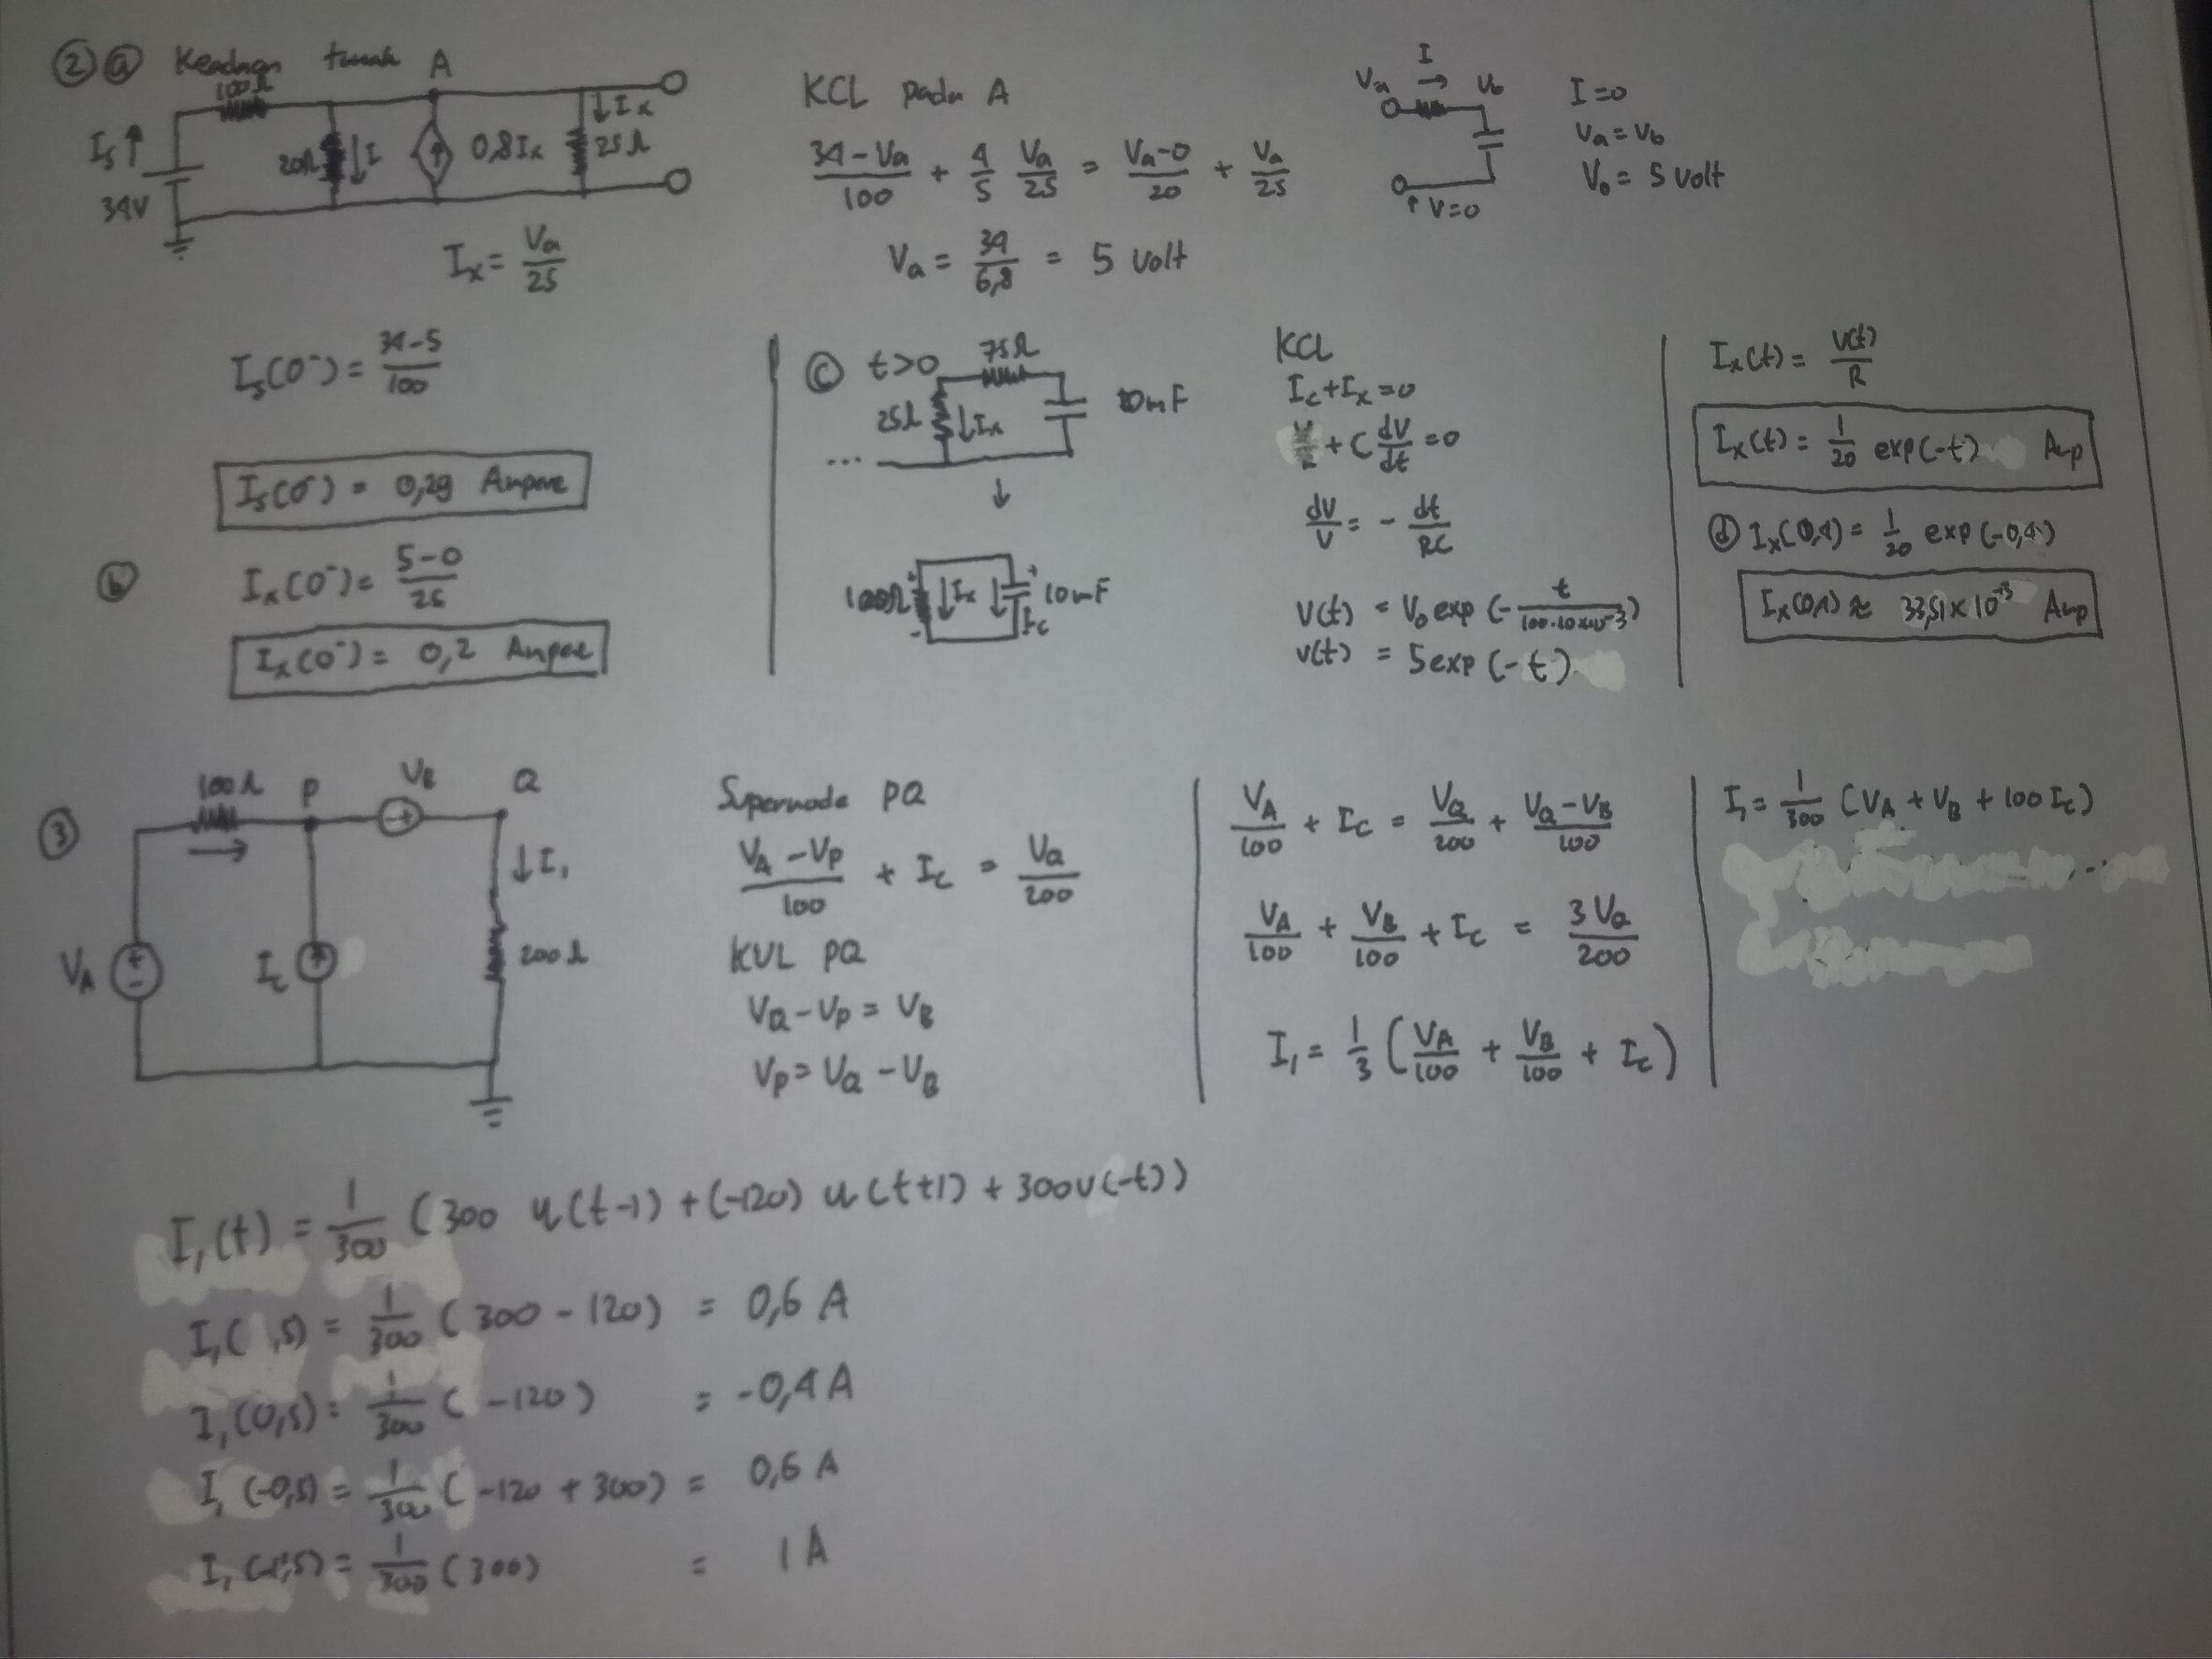 ② ⓐ Keadaan tunak
A
100Ω
I_s ↑
34V
20Ω ↓ I
0,8 I_x
↓ I_x
25Ω
I_x = Va/25
KCL pada A
(34 - Va)/100 + 4/5 Va/25 = (Va - 0)/20 + Va/25
Va = 34/6,8 = 5 volt
Va I → Vb
↑ V=0
I = 0
Va = Vb
V_0 = 5 volt
I_s(0⁻) = (34-5)/100
I_s(0⁻) = 0,29 Ampere
ⓑ I_x(0⁻) = (5-0)/25
I_x(0⁻) = 0,2 Ampere
ⓒ t>0
75Ω
25Ω ↓ I_x
10mF
...
↓
100Ω ↓ I_x ↓ I_c 10mF
KCL
I_c + I_x = 0
V/R + C dV/dt = 0
dV/V = - dt/RC
V(t) = V_0 exp(- t/(100.10×10⁻³))
V(t) = 5 exp(-t)
I_x(t) = V(t)/R
I_x(t) = 1/20 exp(-t) Amp
ⓓ I_x(0,4) = 1/20 exp(-0,4)
I_x(0,4) ≈ 33,51 × 10⁻³ Amp
③
100Ω P V_B Q
↓ I_1
V_A
I_c
200Ω
Supernode PQ
(V_A - V_P)/100 + I_c = V_Q/200
KVL PQ
V_Q - V_P = V_B
V_P = V_Q - V_B
V_A/100 + I_c = V_Q/200 + (V_Q - V_B)/100
V_A/100 + V_B/100 + I_c = 3V_Q/200
I_1 = 1/3 (V_A/100 + V_B/100 + I_c)
I_1 = 1/300 (V_A + V_B + 100 I_c)
I_1(t) = 1/300 (300 u(t-1) + (-120) u(t+1) + 300u(-t))
I_1( ,5) = 1/300 (300 - 120) = 0,6 A
I_1(0,5) = 1/300 ( -120) = -0,4 A
I_1(-0,5) = 1/300 ( -120 + 300) = 0,6 A
I_1(-1,5) = 1/300 (300) = 1 A